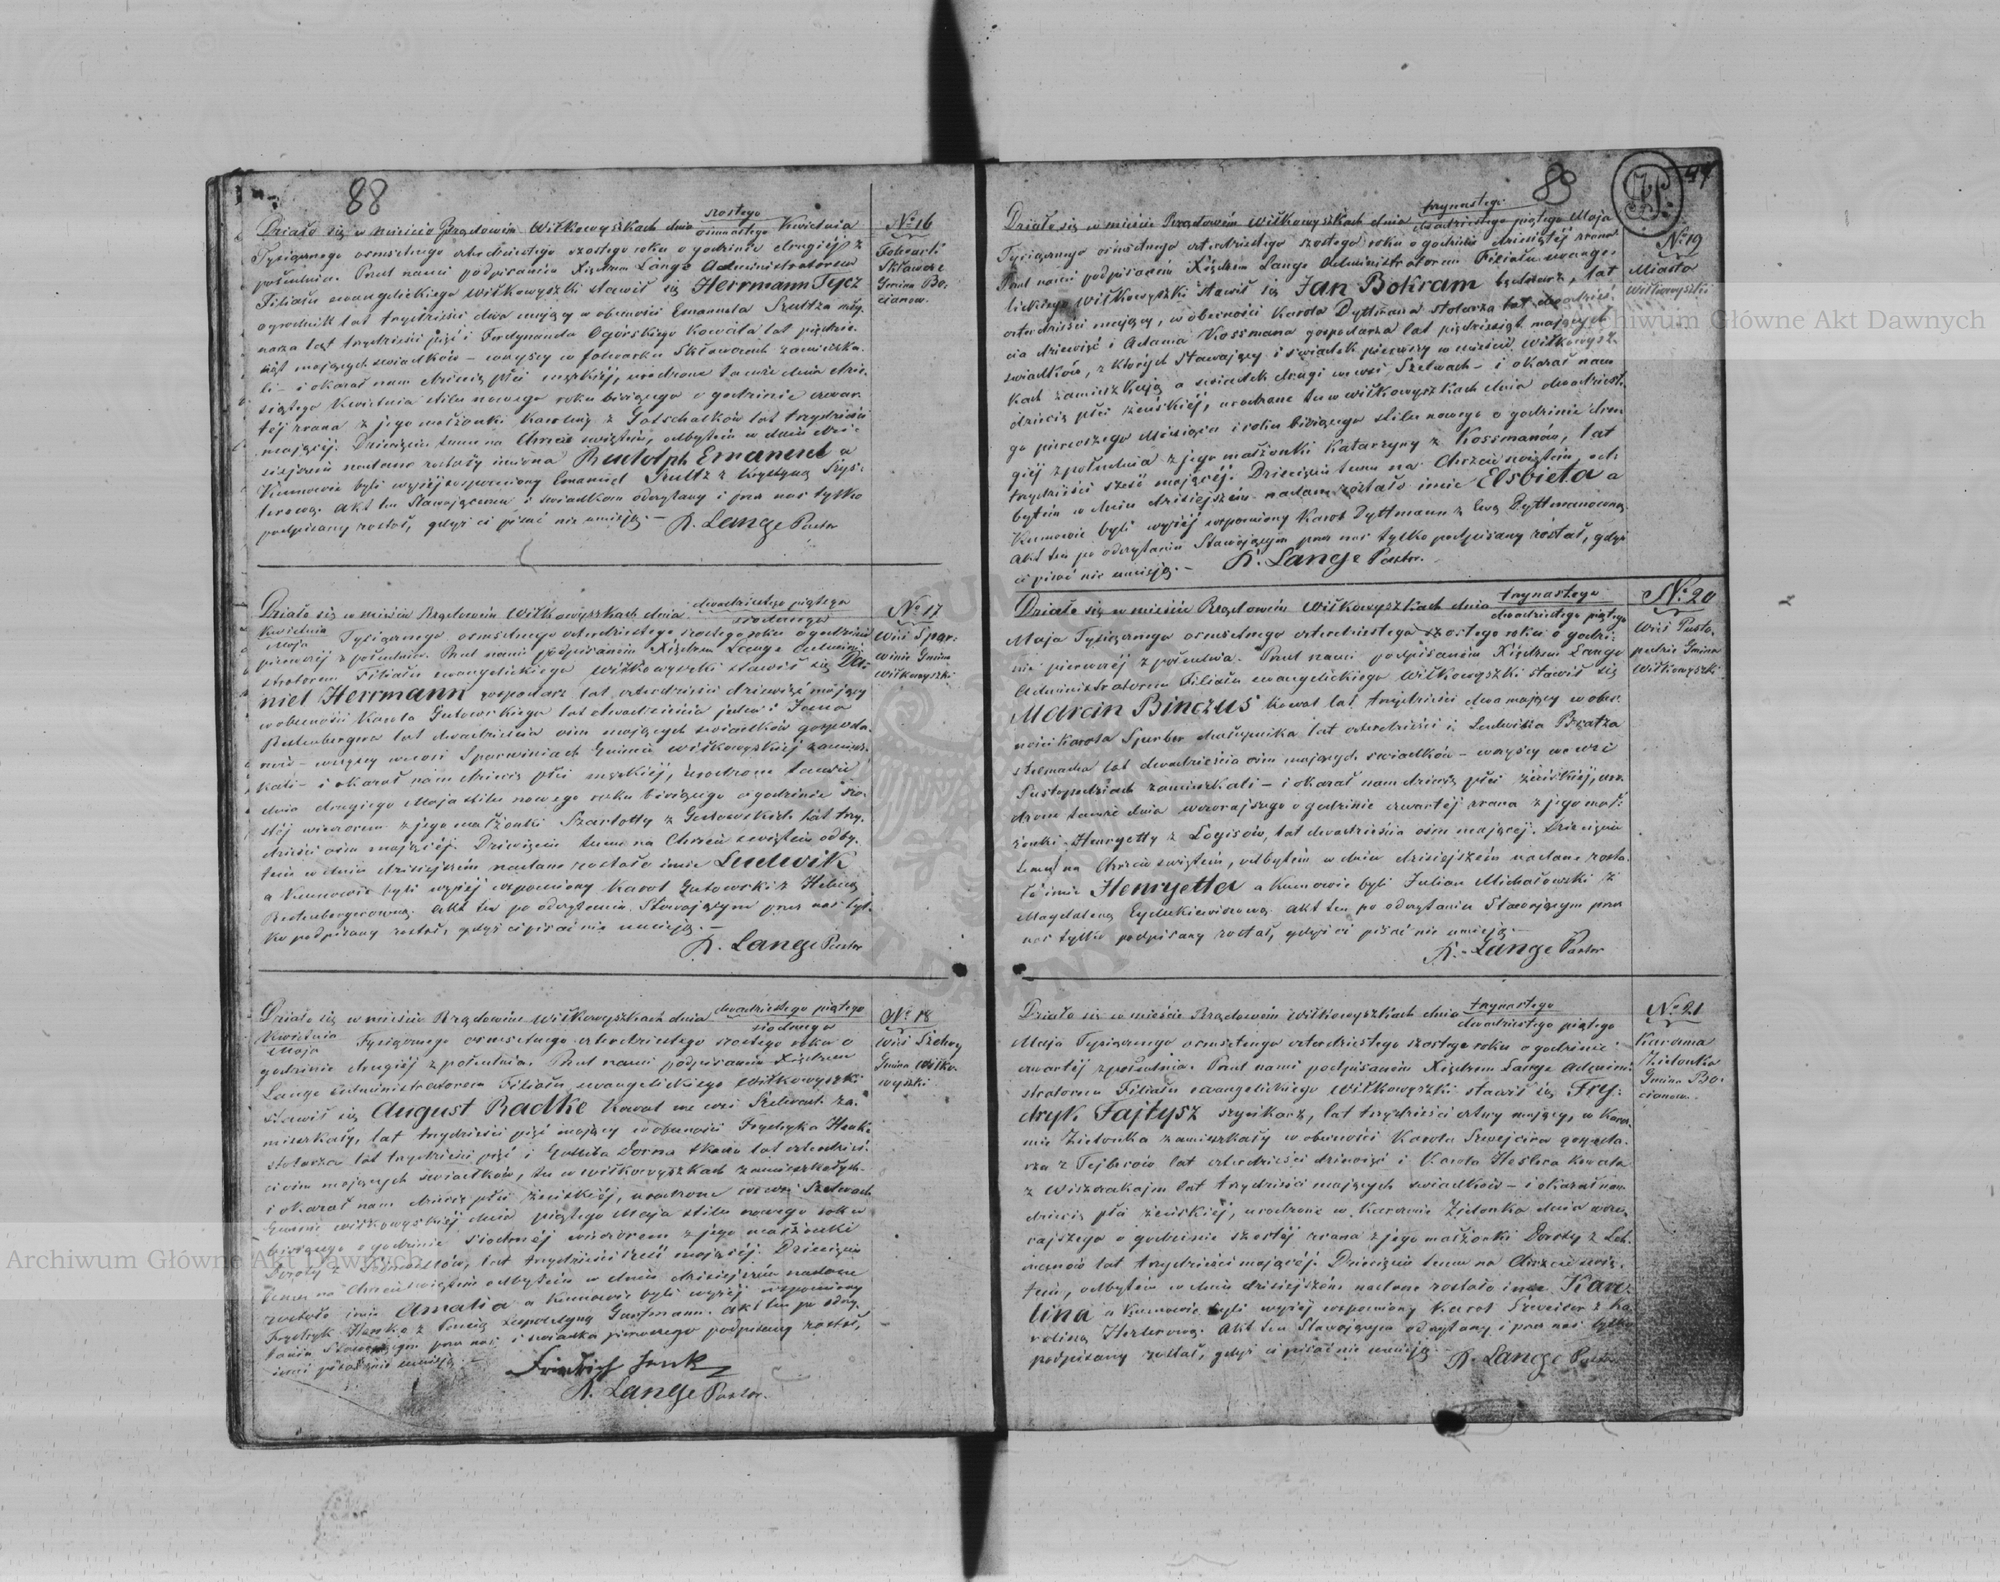 88
Działo się w mieście Rządowém Wiłkowyszkach dnia szóstego / osmnastego Kwietnia
Tysiącznego ośmsetnego czterdziestego szóstego roku o godzinie drugiéj z
południa. Przed nami podpisanym Xiędzem Lange Administratorem
Filiału ewangelickiego Wiłkowyszki stawił się Herrmann Tycz
ogrodnik lat trzydzieści dwa mający w obecności Emanuela Szultza młynarza
lat trzydzieści pięć i Ferdynanda Ogórskiego Kowala lat
mających świadków – wszyscy w folwarku Skławcach zamieszka
li – i okazał nam dziecię płci męzkiéj, urodzone tamże dnia dzie
siątego Kwietnia stilu nowego roku bieżącego o godzinie czwar
téj zrana z jego małżonki Karoliny z Gotschalków lat trzydzieści
mającéj. Dziecięciu temu na Chrzcie świętym, odbytém w dniu dzi
siejszém nadane zostały imiona Rudolph Emanuel a
Kumowie byli wyżéj wspomniony Emanuel Szultz z Krystyną Szys-
lerową. Akt ten Stawającemu i świadkom odczytany i przez nas tylko
podpisany został, gdyż ci pisać nie umieją. – R. Lange Pastor
№ 16
Folwark
Skławcze
Gmina Bo-
cianow.
Działo się w mieście Rządowém Wiłkowyszkach dnia dwudziestego piątego / siódmego
Kwietnia / Maja Tysiącznego ośmsetnego czterdziestego szóstego roku o godzinie
pierwszéj z południa. Przed nami podpisanym Xiędzem Lange Admini
stratorem Filiału ewangelickiego Wiłkowyszki stawił się Da-
niel Herrmann gospodarz lat czterdzieści dziewięć mający
w obecności Karola Gutowskiego lat dwadzieścia jeden i Jana
Rechenbergera lat dwadzieścia ośm mających świadków gospoda-
rzy – wszyscy we wsi Sparwiniach Gminie Wiłkowyskiéj zamiesz-
kali – i okazał nam dziecię płci męzkiéj, urodzone tamże
dnia drugiego Maja stilu nowego roku bieżącego o godzinie szó-
stéj wieczorem z jego małżonki Szarlotty z Gutowskich lat trzy-
dzieści ośm mającéj. Dziecięciu temu na Chrzcie świętym odby-
tém w dniu dzisiejszém nadane zostało imie Ludwik
a Kumowie byli wyżéj wspomniony Karol Gutowski z Heleną
Rechenbergerowną. Akt ten po odczytaniu Stawającym przez nas tyl-
ko podpisany został, gdyż ci pisać nie umieją. –
R. Lange Pastor
№ 17
Wieś Spar-
winie Gmina
Wiłkowyszki
Działo się w mieście Rządowém Wiłkowyszkach dnia dwudziestego piątego / siódmego
Kwietnia / Maja Tysiącznego ośmsetnego czterdziestego szóstego roku o
godzinie drugiéj z południa. Przed nami podpisanym Xiędzem
Lange Administratorem Filiału ewangelickiego Wiłkowyszki
stawił się August Radtke Kowal we wsi Szelwach za-
mieszkały, lat trzydzieści pięć mający w obecności Frydryka Henke
stolarza lat trzydzieści pięć i Gottliba Dorna tkacza lat czterdzieś-
ci ośm mających świadków, tu w Wiłkowyszkach zamieszkałych –
i okazał nam dziecię płci żeńskiéj, urodzone we wsi Szelwach
Gminie Wiłkowyskiéj dnia piątego Maja stilu nowego roku
bieżącego o godzinie siódméj wieczorem z jego małżonki
Doroty z lat trzydzieści sześć mającéj. Dziecięciu
temu na Chrzcie świętym odbytém w dniu dzisiejszém nadane
zostało imie Amalia a Kumowie byli wyżéj wspomniony
Frydryk Henke z Leopoldyną. Akt ten po odczy-
taniu Stawającym przez nas i świadka pierwszego podpisany został,
inni pisać nie umieją. –
Friedrich Henk
R. Lange Pastor.
№ 18
Wieś Szelwy
Gmina Wiłko-
wyszki
89
Działo się w mieście Rządowém Wiłkowyszkach dnia trzynastego / dwudziestego piątego Maja
Tysiącznego ośmsetnego czterdziestego szóstego roku o godzinie dziesiątéj zrana
Przed nami podpisanym Xiędzem Lange Administratorem Filiału ewange-
lickiego Wiłkowyszki stawił się Jan Bokram bednarz, lat
czterdzieści mający, w obecności Karola Dyttmana stolarza lat dwadzieś-
cia dziewięć i Adama Kossmana gospodarza lat pięćdziesiąt mających
świadków, z których Stawający i świadek pierwszy w mieście Wiłkowysz-
kach zamieszkują a świadek drugi we wsi Szelwach – i okazał nam
dziecię płci żeńskiéj, urodzone tu w Wiłkowyszkach dnia dwudzieste-
go pierwszego Miesiąca i roku bieżącego stilu nowego o godzinie dru-
giéj z południa z jego małżonki Katarzyny z Kossmanów, lat
trzydzieści sześć mającéj. Dziecięciu temu na Chrzcie świętym, od-
bytém w dniu dzisiejszém nadane zostało imie Elsbieta a
Kumowie byli wyżéj wspomniony Karol Dyttmann z Ewą Dyttmanową
Akt ten po odczytaniu Stawającym przez nas tylko podpisany został, gdyż
ci pisać nie umieją. – R. Lange Pastor.
№ 19
Miasto
Wiłkowyszki
Działo się w mieście Rządowém Wiłkowyszkach dnia trzynastego / dwudziestego piątego
Maja Tysiącznego ośmsetnego czterdziestego szóstego roku o godzi-
nie pierwszéj z południa. Przed nami podpisanym Xiędzem Lange
Administratorem Filiału ewangelickiego Wiłkowyszki stawił się
Marcin Binczus Kowal lat trzydzieści dwa mający w obec-
ności Karola Sperber chałupnika lat czterdzieści i Ludwika Bratza
stelmacha lat dwadzieścia ośm mających świadków – wszyscy we wsi
Pustopedziach zamieszkali – i okazał nam dziecię płci żeńskiéj, uro-
dzone tamże dnia wczorajszego o godzinie czwartéj zrana z jego mał-
żonki Henryetty z Logisów, lat dwadzieścia ośm mającéj. Dziecięciu
temu na Chrzcie świętym, odbytém w dniu dzisiejszém nadane zosta-
ło imie Henryetta a Kumowie byli Julian Michałowski z
Magdaleną Eydukiewiczową. Akt ten po odczytaniu Stawającym przez
nas tylko podpisany został, gdyż ci pisać nie umieją. –
R. Lange Pastor
№ 20
Wieś Pusto-
pedzie Gmina
Wiłkowyszki
Działo się w mieście Rządowém Wiłkowyszkach dnia trzynastego / dwudziestego piątego
Maja Tysiącznego ośmsetnego czterdziestego szóstego roku o godzinie
czwartéj z południa. Przed nami podpisanym Xiędzem Lange Admini-
stratorem Filiału ewangelickiego Wiłkowyszki stawił się Fry-
dryk Fajtysz szynkarz, lat trzydzieści cztery mający, w Karcz-
mie Zielonka zamieszkały w obecności Karola Szwejcera gospoda-
rza z Tejberów lat czterdzieści dziewięć i Karola Heslera kowala
z Wiszrakajm lat trzydzieści mających świadków – i okazał nam
dziecię płci żeńskiéj, urodzone w Karczmie Zielonka dnia wczo-
rajszego o godzinie szóstéj zrana z jego małżonki Doroty z Leh-
manów lat trzydzieści mającéj. Dziecięciu temu na Chrzcie świę-
tym, odbytém w dniu dzisiejszém nadane zostało imie Karo-
lina a Kumowie byli wyżéj wspomniony Karol Szweicer z Ka-
roliną Heslerową. Akt ten Stawającym odczytany i przez nas tylko
podpisany został, gdyż ci pisać nie umieją. –
R. Lange Pastor
№ 21
Karczma
Zielonka
Gmina Bo-
cianow.
Archiwum Główne Akt Dawnych
Archiwum Główne Akt Dawnych